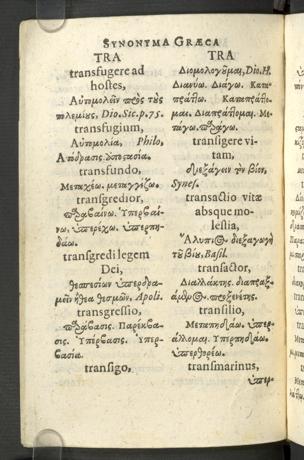 SYNONYMA GRÆCA
TRA
transfugere ad
hostes,
Αὐτομολεῖν πρὸς τὺς
πολεμίυς, Dio. Sic. p. 75.
transfugium,
Αὐτομολία, Philo,
Ἀπόδρασις.
transfundo,
Μεταχέω. μεταγγίζω.
transgredior,
παραβαίνω. Ὑπερβαί-
νω. ὑπερέχω. ὑπερπη-
δάω.
transgredi legem
Dei,
transgressio,
παράβασις. Παρέκβα-
σις. Ὑπέρβασις. Ὑπερ-
βασία.
transigo,
TRA
Διομολογοῦμαι, Dio. H.
Διανύω. Διάγω. Κατα-
πράττω. Καταπράττο-
μαι. Διαπράττομαι. Με-
τάγω. παράγω.
transigere vi-
tam,
διεξάγειν τὸν βίον,
Synes.
transactio vitæ
absque mo-
lestia,
Ἄλυπος διεξαγωγὴ
τοῦ βίου, Basil.
transactor,
Διαλλάκτης.
προξενέτης.
transilio,
Μεταπηδάω. ὑπερ-
άλλομαι. Ὑπερπηδάω.
ὑπερθορέω.
transmarinus,
ὑπερ-